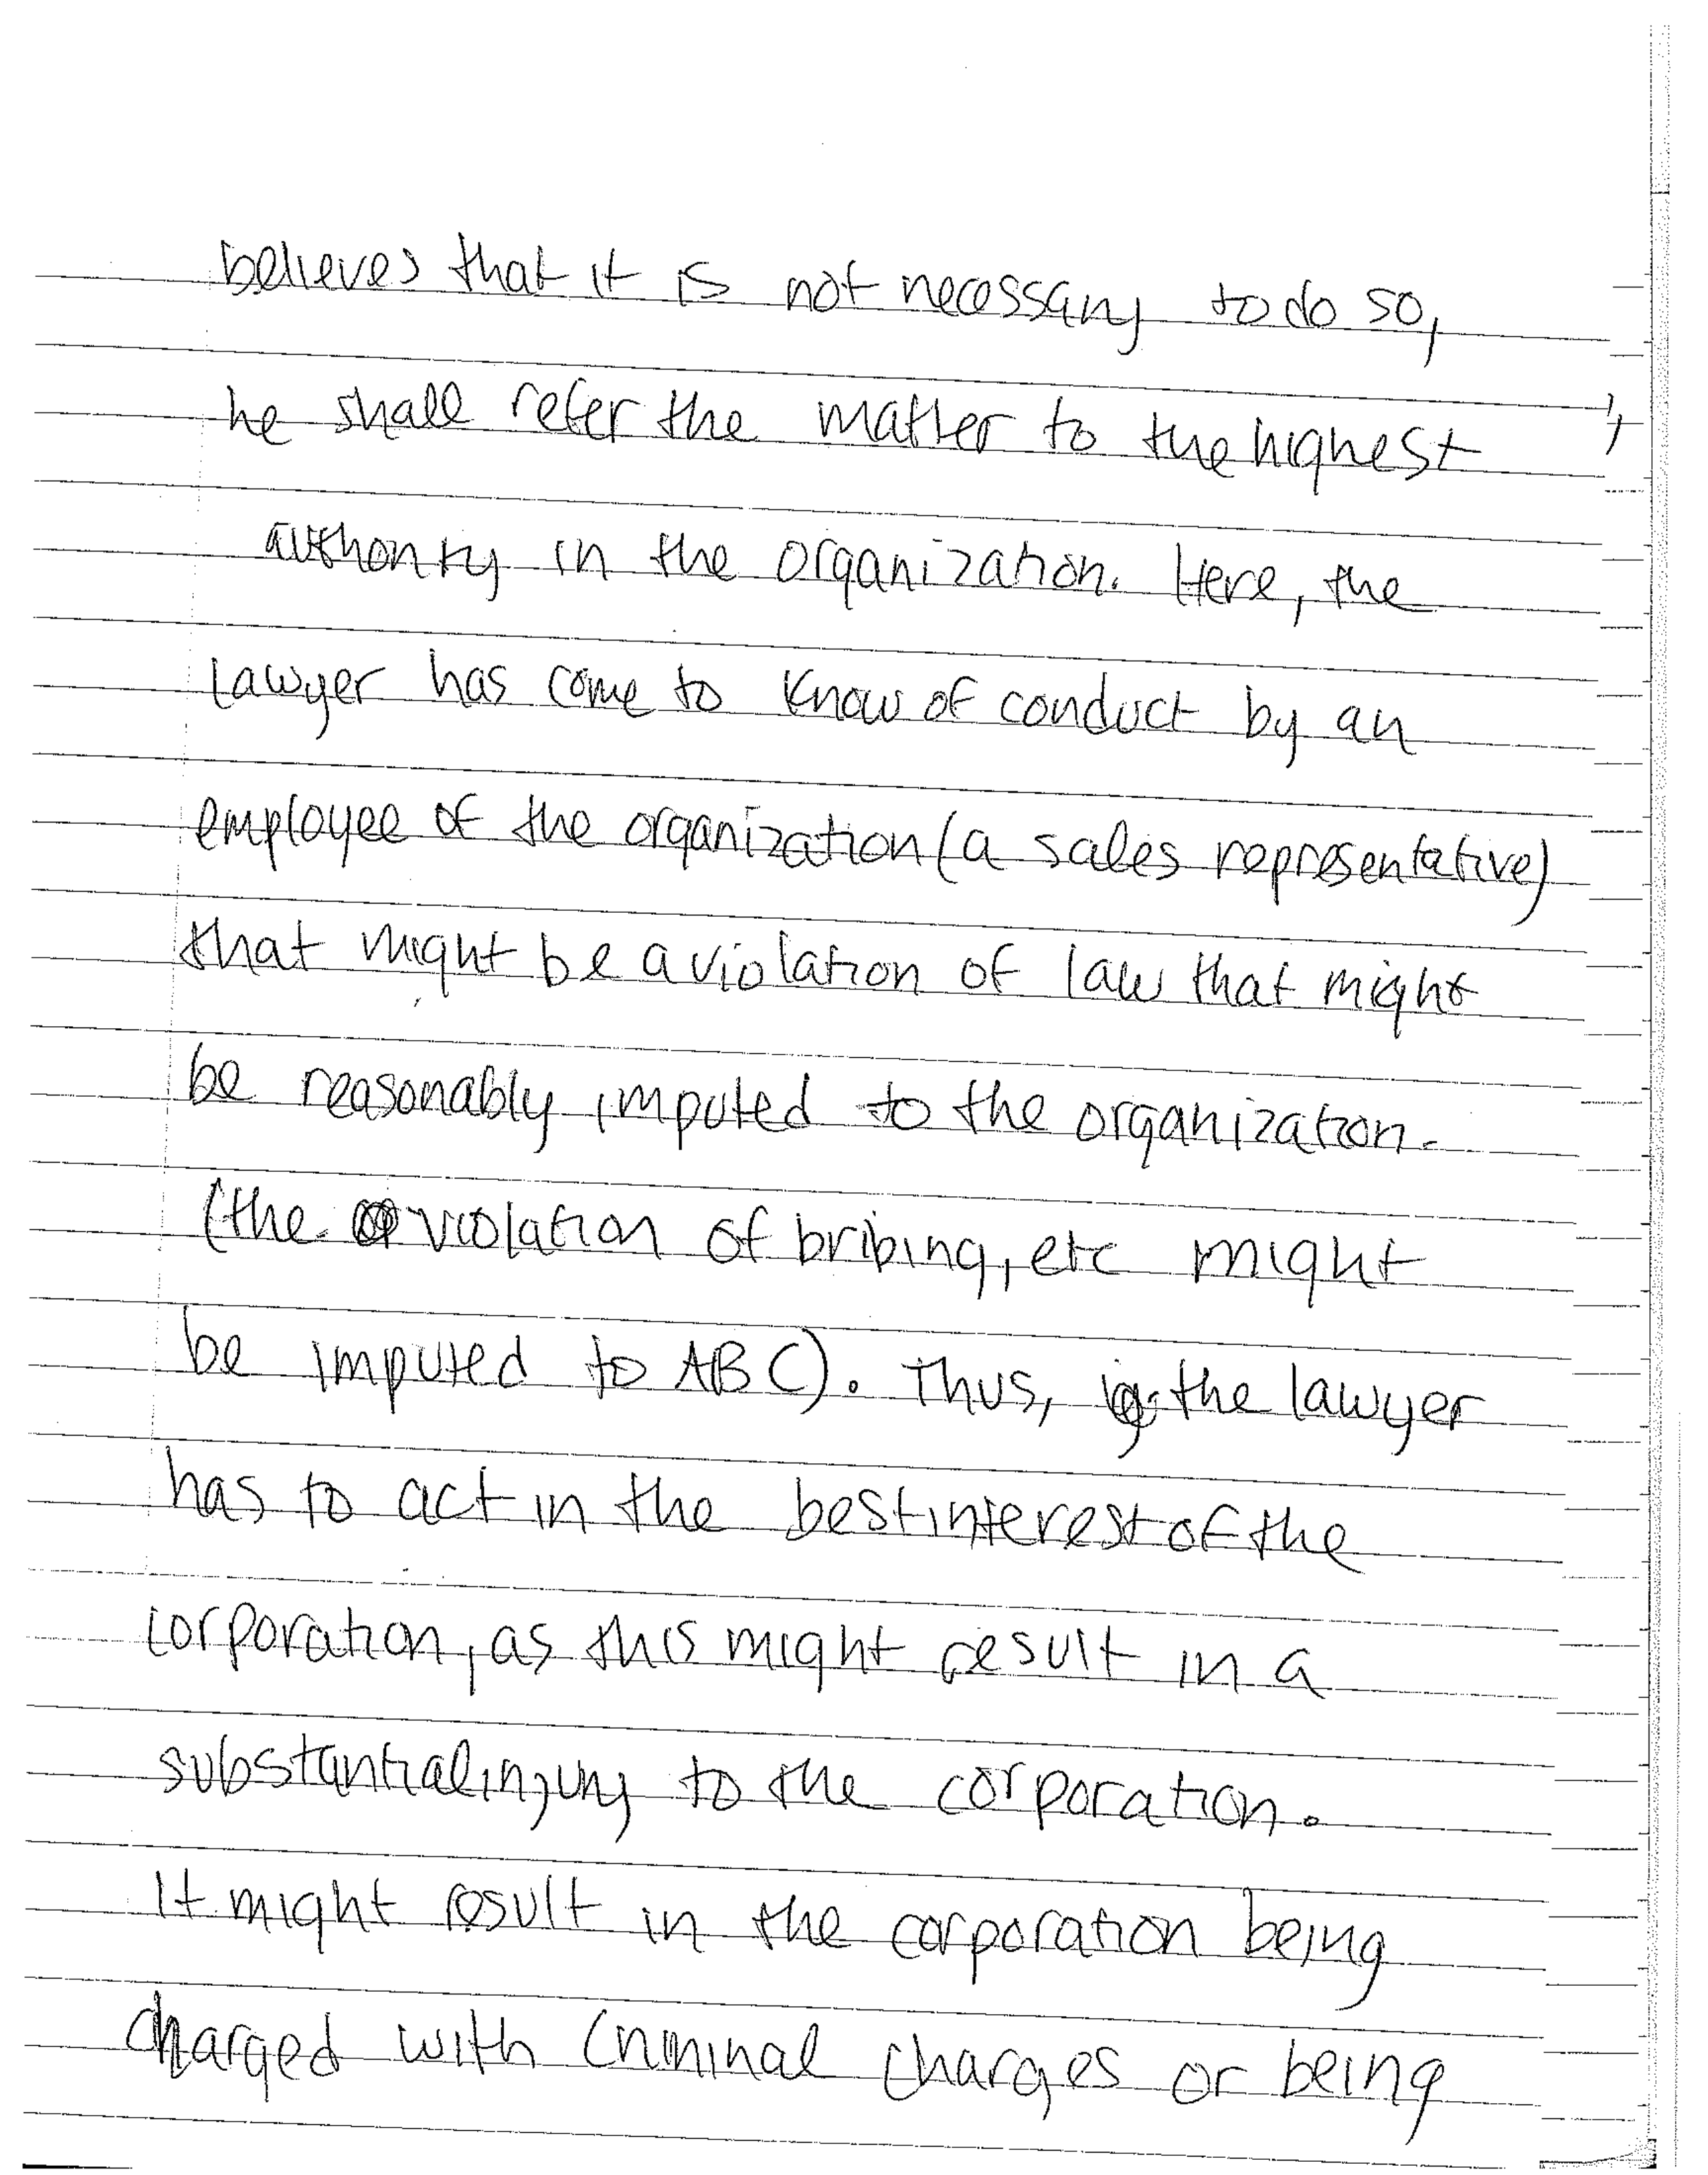 believes that it is not necessary to do so,
he shall refer the matter to the highest
authority in the organization. Here, the
lawyer has come to know of conduct by an
employee of the organization (a sales representative)
that might be a violation of law that might
be reasonably imputed to the organization.
(the violation of bribing, etc might
be imputed to ABC). Thus, the lawyer
has to act in the best interest of the
corporation, as this might result in a
substantial injury to the corporation.
It might result in the corporation being
charged with criminal charges or being